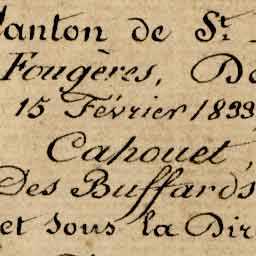 Canton de St.
Fougères, D
15 Février 1833
Cahouet,
Des Buffards
et sous la Dir